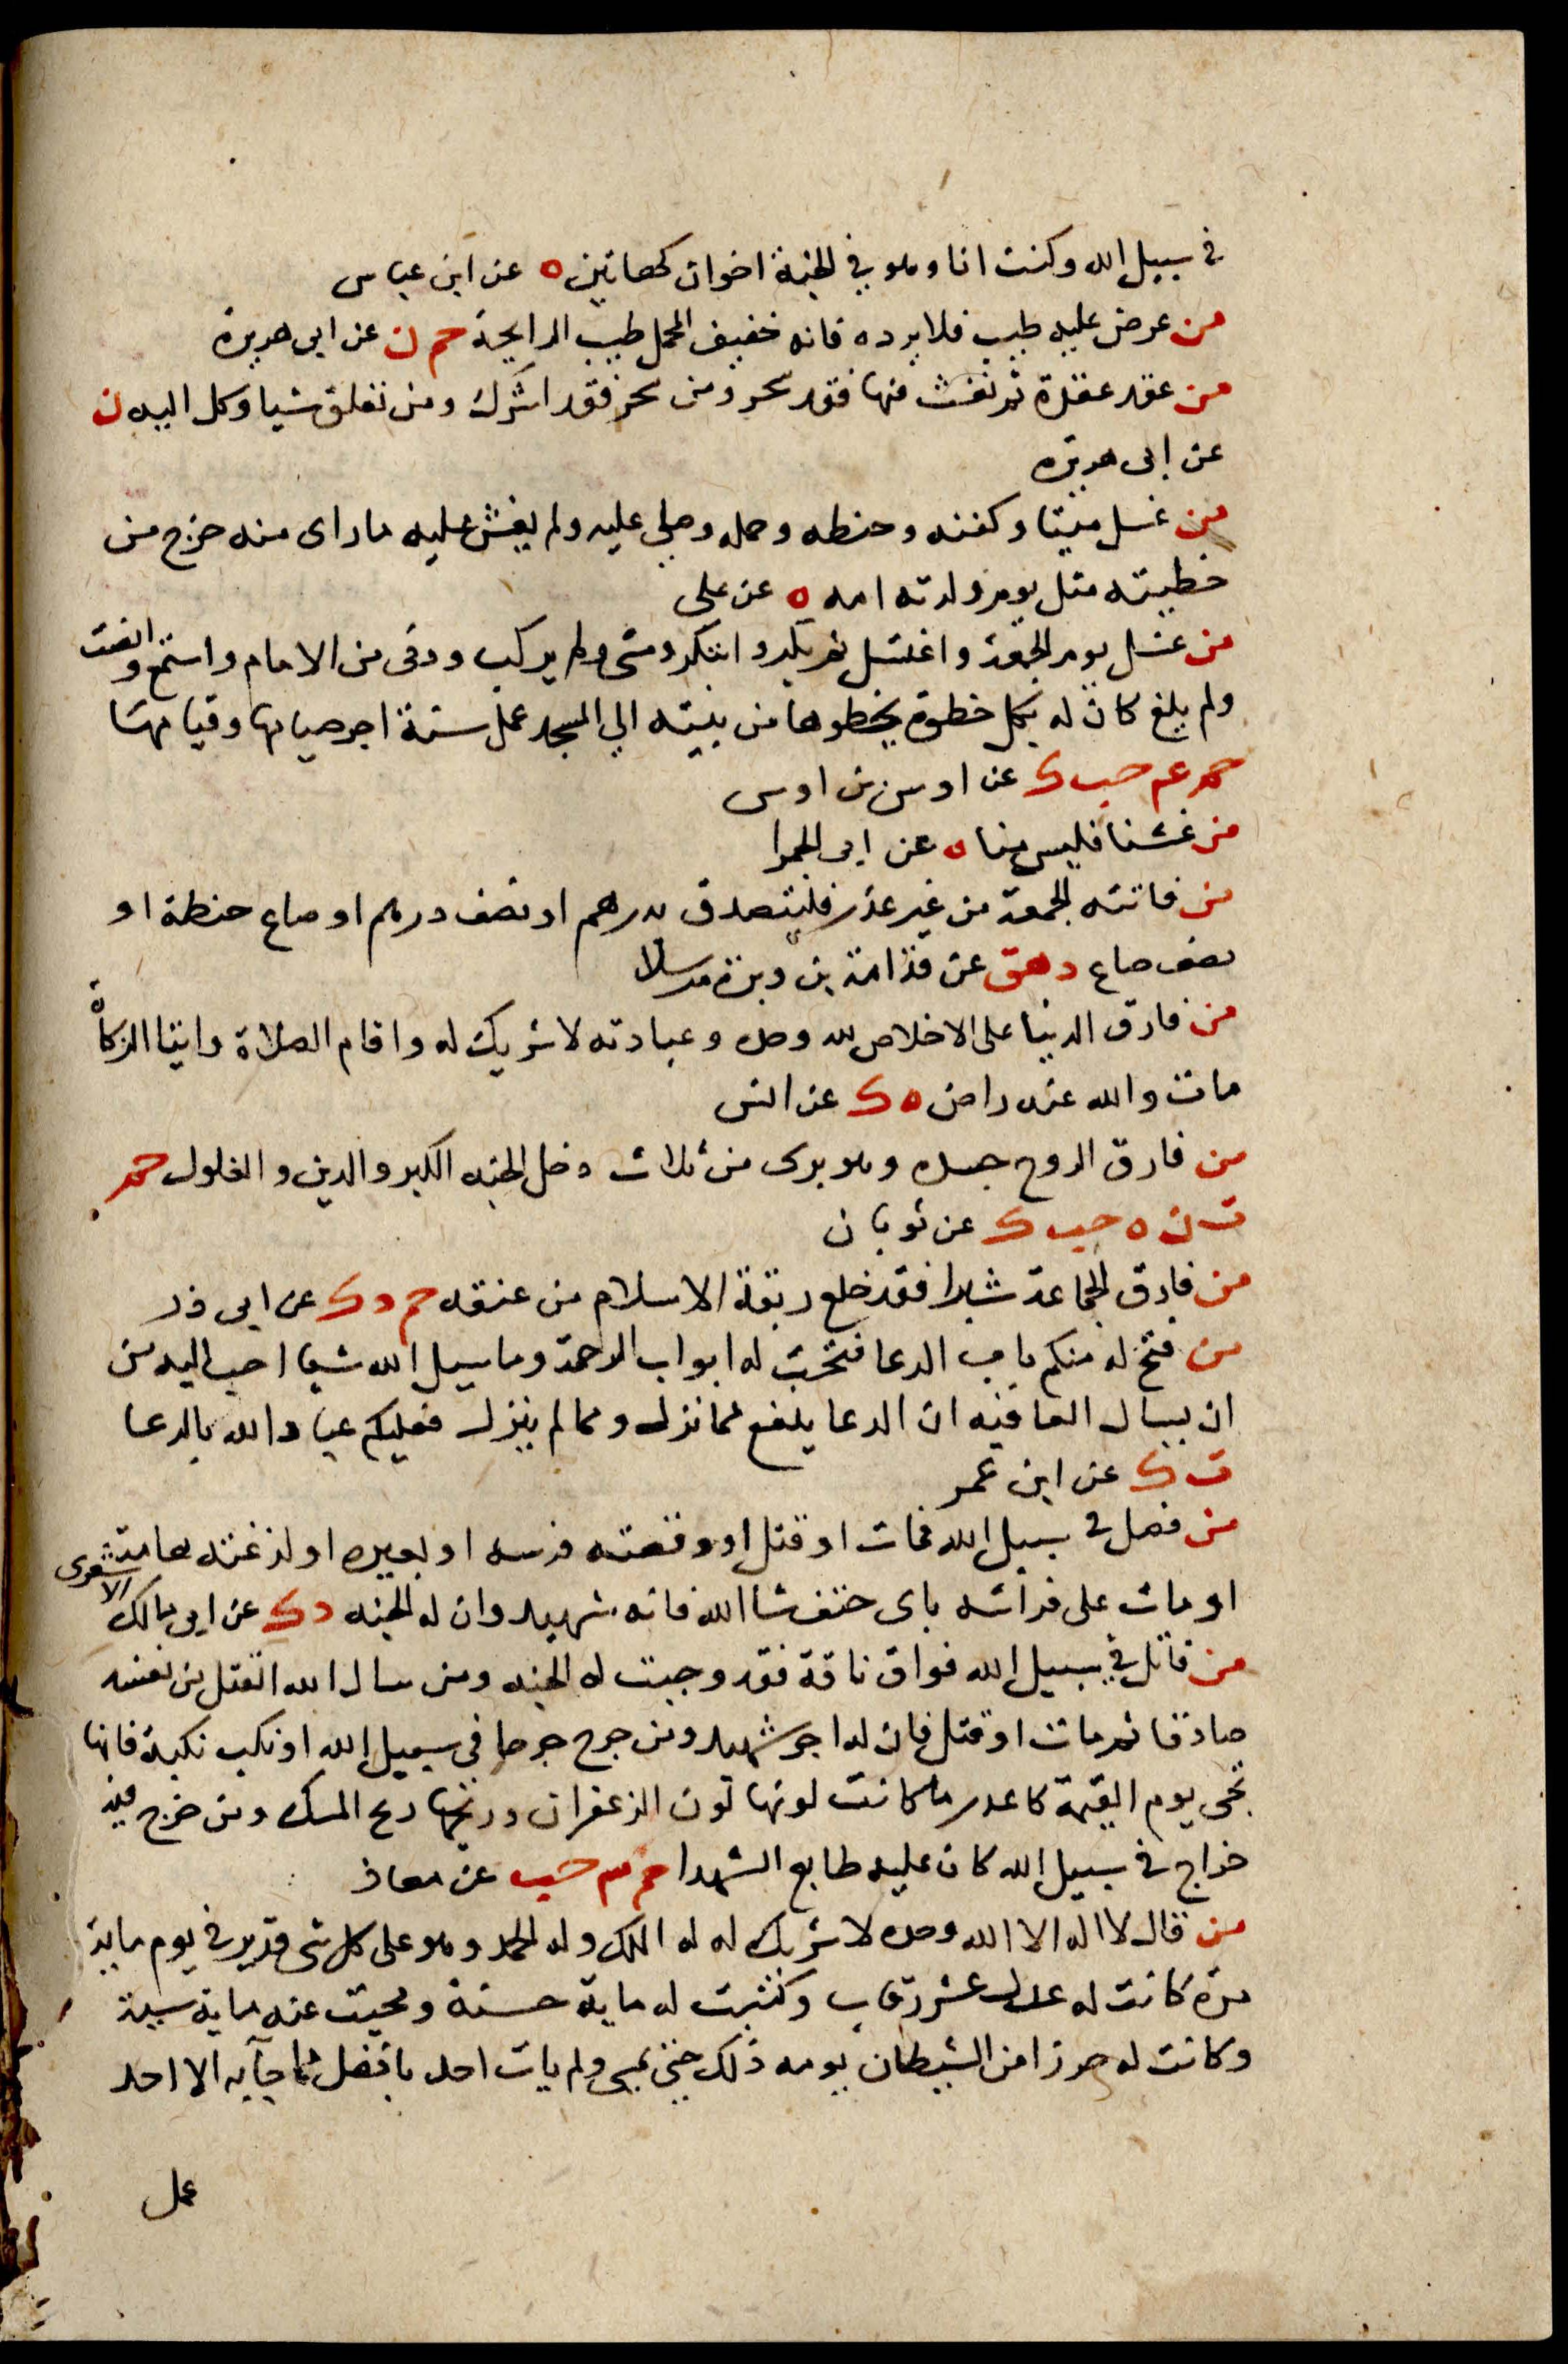 في سبيل الله وكنت انا وهو في الجنة اخوان كهاتين ه عن ابن عباس
من عرض عليه طيب فلا يرده فانه خفيف المحمل طيب الرايحة حم ن عن ابي هريرة
من عقد عقدة ثم نفث فيها فقد سحر ومن سحر فقد اشرك ومن تعلق شيا وكل اليه ن
عن ابي هريرة
من غسل ميتا وكفنه وحنطه وحمله وصلي عليه ولم يفش عليه ما راى منه خرج من
خطيته مثل يوم ولدته امه ه عن علي
من غسل يوم الجمعة واغتسل ثم بكر وابتكر ومشى ولم يركب ودنى من الامام واستمع وانصت
ولم يلغ كان له بكل خطوة يخطوها من بيته الي المسجد عمل سنة اجر صيامها وقيامها
حم عم حب ك عن اوس بن اوس
من غشنا فليس منا ه عن ابي الحمرا
من فاتته الجمعة من غير عذر فليتصدق بدرهم او نصف درهم او صاع حنطة او
نصف صاع د هق عن قدامة بن وبرة مرسلا
من فارق الدنيا على الاخلاص لله وحده وعبادته لا شريك له واقام الصلاة وايتا الزكاة
مات والله عنه راض ه ك عن انس
من فارق الروح جسده وهو برى من ثلاث دخل الجنه الكبر والدين والغلول حم
ت ن ه حب ك عن ثوبان
من فارق الجماعة شبرا فقد خلع ربقة الاسلام من عنقه حم د ك عن ابي ذر
من فتح له منكم باب الدعا فتحت له ابواب الرحمة وما سيل الله شيا احب اليه من
ان يسال العافيه ان الدعا ينفع مما نزل ومما لم ينزل فعليكم عباد الله بالدعا
ت ك عن ابن عمر
من فصل في سبيل الله فمات او قتل او وقصته فرسه او بعيره او لدغته هامة
او مات على فراشه باى حتف شا الله فانه شهيد وان له الجنه د ك عن ابي مالك الاشعرى
من قاتل في سبيل الله فواق ناقة فقد وجبت له الجنه ومن سال الله القتل من نفسه
صادقا ثم مات او قتل فان له اجر شهيد ومن جرح جرحا في سبيل الله او نكب نكبة فانها
تجى يوم القيمة كاغدر ما كانت لونها لون الزعفران وريحها ريح المسك ومن خرج فيه
خراج في سبيل الله كان عليه طابع الشهدا حم حب عن معاذ
من قال لا اله الا الله وحده لا شريك له له الملك وله الحمد وهو على كل شى قدير في يوم ماية
مرة كانت له عدل عشر رقاب وكتبت له ماية حسنة ومحيت عنه ماية سيية
وكانت له حرزا من الشيطان يومه ذلك حتى يمسى ولم يات احد بافضل مما جآ به الا احد
عمل